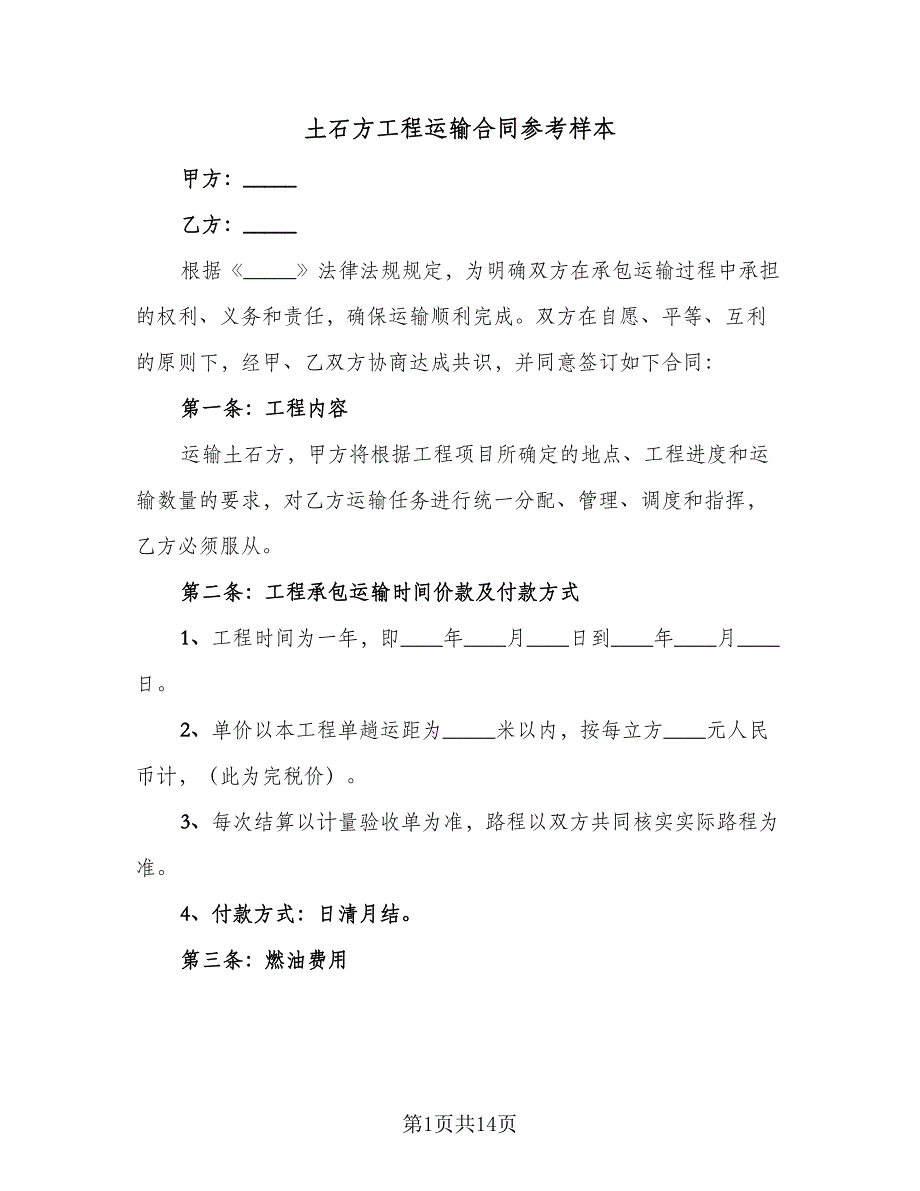 土石方工程运输合同参考样本
甲方：_____
乙方：_____
根据《_____》法律法规规定，为明确双方在承包运输过程中承担
的权利、义务和责任，确保运输顺利完成。双方在自愿、平等、互利
的原则下，经甲、乙双方协商达成共识，并同意签订如下合同：
第一条：工程内容
运输土石方，甲方将根据工程项目所确定的地点、工程进度和运
输数量的要求，对乙方运输任务进行统一分配、管理、调度和指挥，
乙方必须服从。
第二条：工程承包运输时间价款及付款方式
1、工程时间为一年，即____年____月____日到____年____月____
日。
2、单价以本工程单趟运距为_____米以内，按每立方____元人民
币计，（此为完税价）。
3、每次结算以计量验收单为准，路程以双方共同核实实际路程为
准。
4、付款方式：日清月结。
第三条：燃油费用
第1页共14页